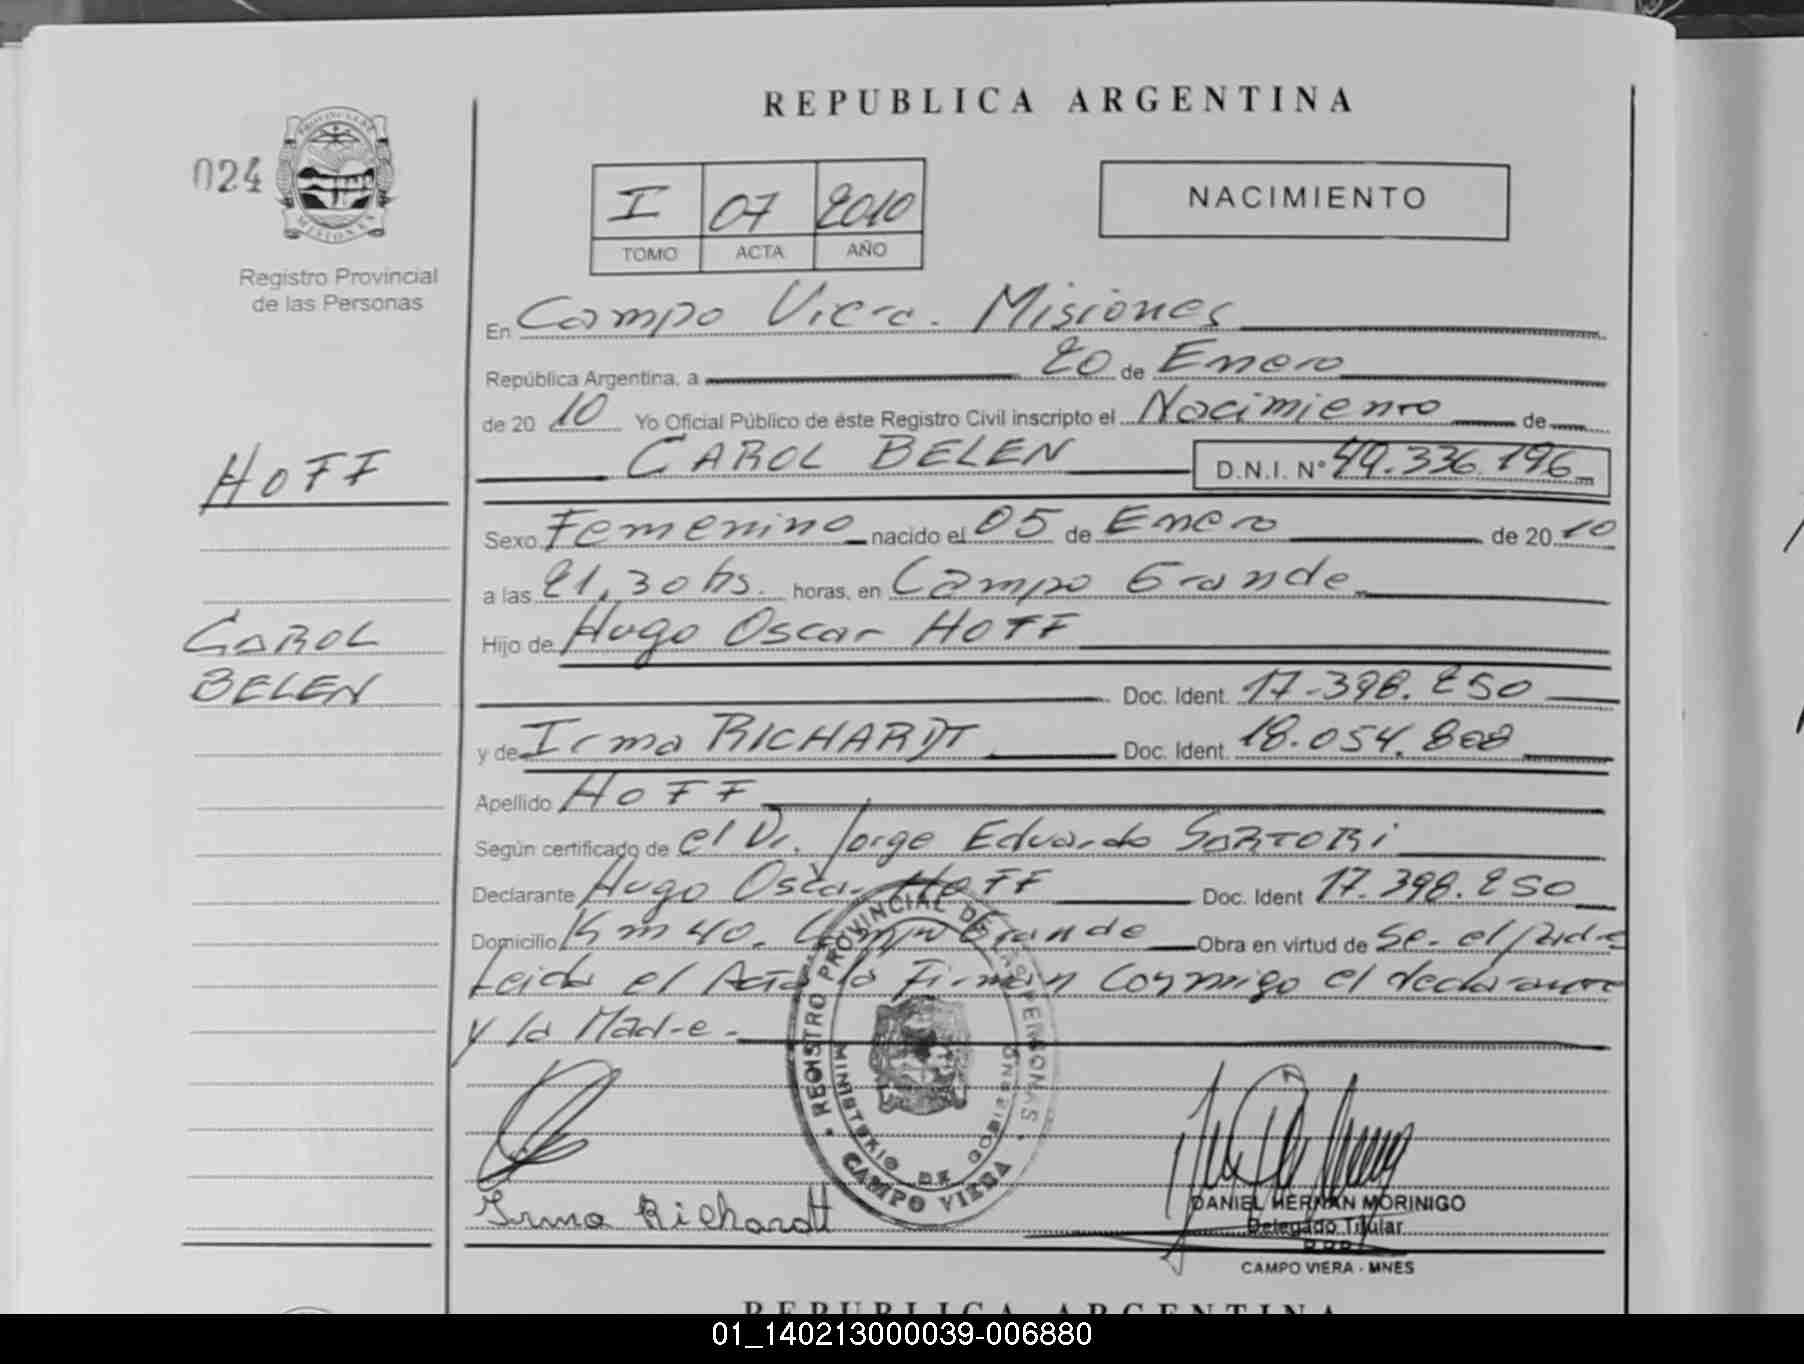 REPUBLICA ARGENTINA
024
PROVINCIA DE
MISIONES
Registro Provincial
de las Personas
I 07 2010
TOMO ACTA AÑO
NACIMIENTO
En Campo Viera. Misiones
República Argentina, a 20 de Enero
de 20 10 Yo Oficial Público de éste Registro Civil inscripto el Nacimiento de
CAROL BELEN D.N.I. N° 49.336.196
HOFF
Sexo Femenino nacido el 05 de Enero de 20 10
a las 21,30 hs. horas, en Campo Grande
CAROL
BELEN
Hijo de Hugo Oscar HOFF
Doc. Ident. 17.398.250
y de Irma RICHARDT Doc. Ident. 18.054.808
Apellido HOFF
Según certificado de el Dr. Jorge Eduardo SARTORI
Declarante Hugo Oscar HOFF Doc. Ident 17.398.250
Domicilio Km 40. Campo Grande Obra en virtud de Se. el padre
Leida el Acta la Firman Conmigo el declarante
y la Madre.
REGISTRO PROVINCIAL DE LAS PERSONAS
MINISTERIO DE GOBIERNO
CAMPO VIERA
Irma Richardt
DANIEL HERNAN MORINIGO
Delegado Titular
CAMPO VIERA - MNES
REPUBLICA ARGENTINA
01_140213000039-006880